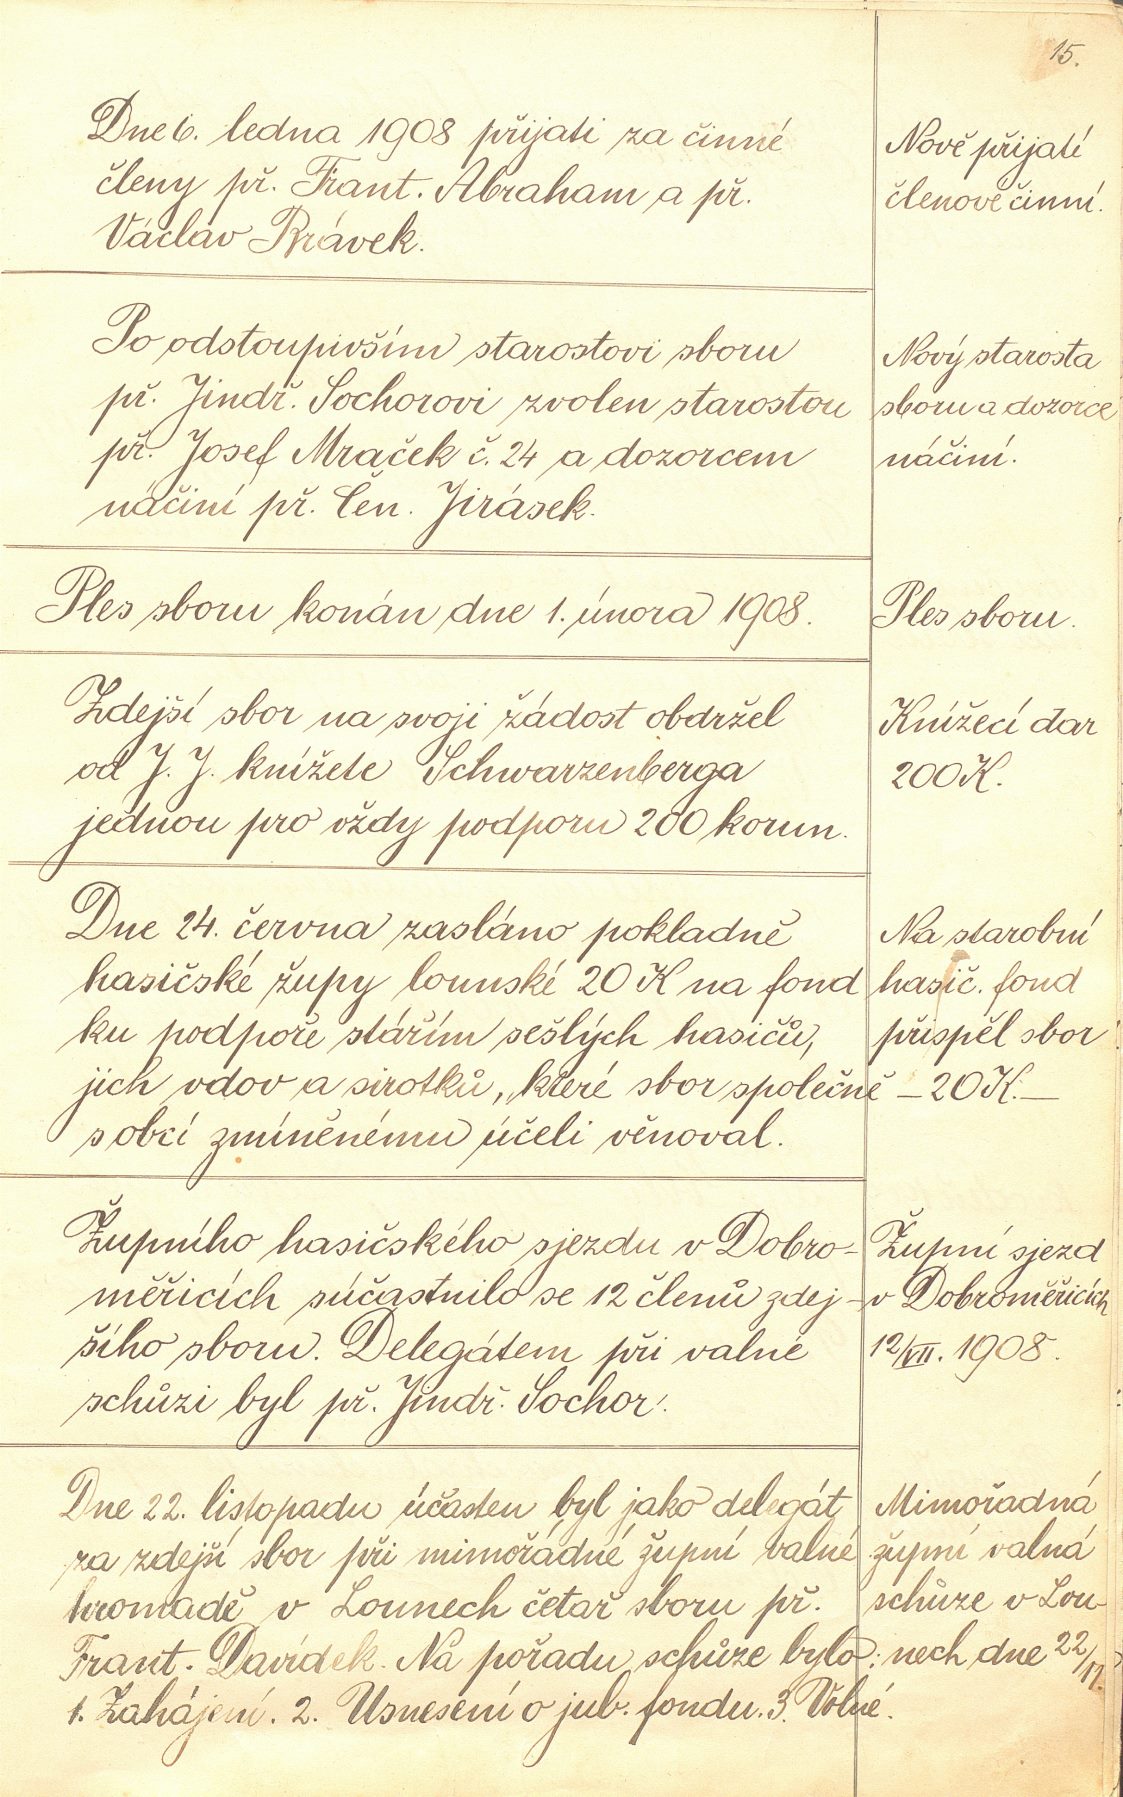 15.
Dne 6. ledna 1908 přijati za činné
členy př. Frant. Abraham a př.
Václav Brávek.
Nově přijatí
členové činní.
Po odstoupivším starostovi sboru
př. Jindř. Sochorovi zvolen starostou
př. Josef Mraček č. 24 a dozorcem
náčiní př. Čen. Jirásek.
Nový starosta
sboru a dozorce
náčiní.
Ples sboru konán dne 1. února 1908.
Ples sboru.
Zdejší sbor na svoji žádost obdržel
od J. J. knížete Schwarzenberga
jednou pro vždy podporu 200 korun.
Knížecí dar
200 K.
Dne 24. června zasláno pokladně
hasičské župy lounské 20 K na fond
ku podpoře stářím sešlých hasičů,
jich vdov a sirotků, které sbor společně
s obcí zmíněnému účeli věnoval.
Na starobní
hasič. fond
přispěl sbor
— 20 K. —
Župního hasičského sjezdu v Dobro-
měřicích súčastnilo se 12 členů zdej-
šího sboru. Delegátem při valné
schůzi byl př. Jindř. Sochor.
Župní sjezd
v Dobroměřicích
12/VII. 1908.
Dne 22. listopadu účasten byl jako delegát
za zdejší sbor při mimořádné župní valné
hromadě v Lounech četař sboru př.
Frant. Davídek. Na pořadu schůze bylo:
1. Zahájení. 2. Usnesení o jub. fondu. 3. Volné.
Mimořadná
župní valná
schůze v Lou-
nech dne 22/11.